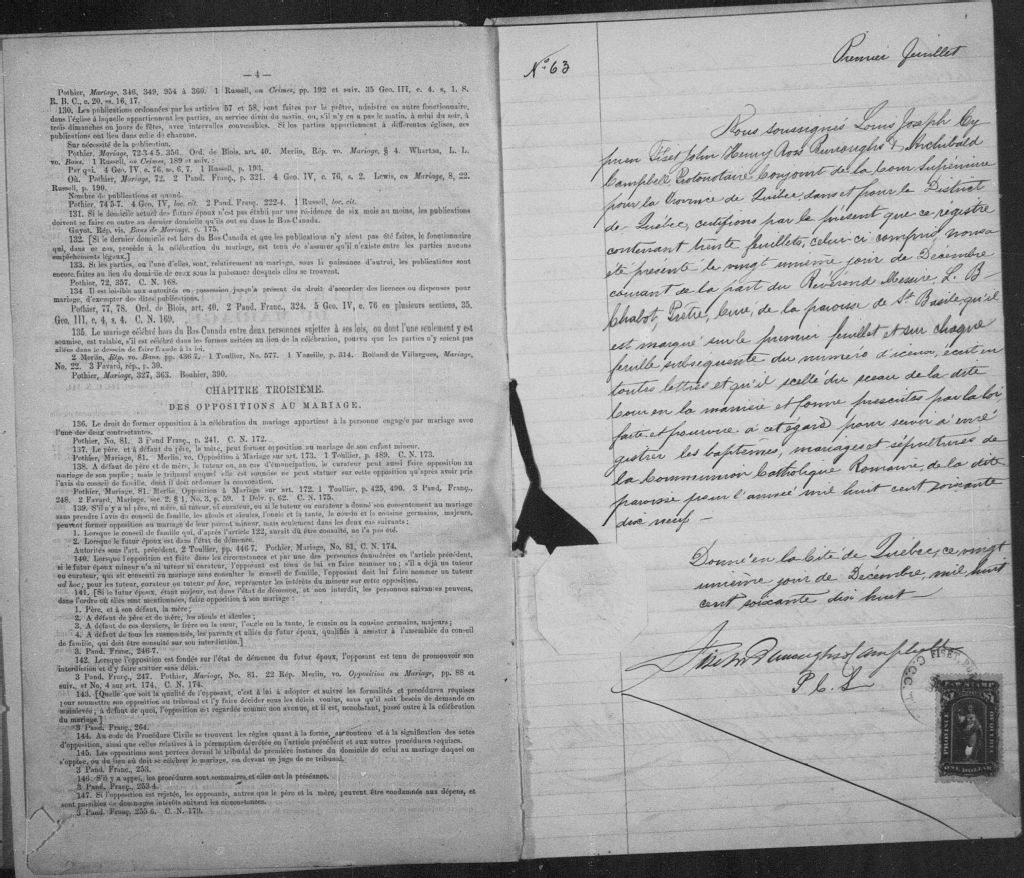 — 4 —
Pothier, Mariage, 346, 349, 954 à 360. 1 Russell, on Crimes, pp. 192 et suiv. 35 Geo. III, c. 4. s, 1. S.
R. B. C., c. 20, ss. 16, 17.
130. Les publications ordonnées par les articles 57 et 58, sont faites par le prêtre, ministre ou autre fonctionnaire,
dans l'église à laquelle appartiennent les parties, au service divin du matin, ou, s'il n'y en a pas le matin, à celui du soir, à
trois dimanches ou jours de fêtes, avec intervalles convenables. Si les parties appartiennent à différentes églises, ces
publications ont lieu dans celle de chacune.
Sur nécessité de la publication.
Pothier, Mariage, 72-3-4-5, 356. Ord. de Blois, art. 40. Merlin, Rép. vo. Mariage, § 4. Wharton, L. L.
vo. Bans. 1 Russell, on Crimes, 189 et suiv. :
Par qui. 4 Geo. IV, c. 76, ss. 6, 7. 1 Russell, p. 193.
Où. Pothier, Mariage, 72. 2 Pand. Franç., p. 321. 4 Geo. IV, c. 76, s. 2. Lewis, on Mariage, 8, 22.
Russell, p. 190.
Nombre de publications et quand.
Pothier, 74 5-7. 4 Geo. IV, loc. cit. 2 Pand. Franç. 222-4. 1 Russell, loc. cit.
131. Si le domicile actuel des futurs époux n'est pas établi par une résidence de six mois au moins, les publications
doivent se faire en outre au dernier domicile qu'ils ont eu dans le Bas-Canada.
Guyot. Rép. vis. Bans de Mariage, p. 175.
132. [Si le dernier domicile est hors du Bas-Canada et que les publications n'y aient pas été faites, le fonctionnaire
qui, dans ce cas, procède à la célébration du mariage, est tenu de s'assurer qu'il n'existe entre les parties aucuns
empêchements légaux.]
133. Si les parties, ou l'une d'elles, sont, relativement au mariage, sous la puissance d'autrui, les publications sont
encore faites au lieu du domicile de ceux sous la puissance desquels elles se trouvent.
Pothier, 72, 357. C. N. 168.
134 Il est loisible aux autorités en possession jusqu'à présent du droit d'accorder des licences ou dispenses pour
mariage, d'exempter des dites publications.
Pothier, 77, 78. Ord. de Blois, art. 40. 2 Pand. Franç., 324. 5 Geo. IV, c. 76 en plusieurs sections, 35.
Geo. III, c. 4, s, 4. C. N. 169.
135. Le mariage célébré hors du Bas-Canada entre deux personnes sujettes à ses lois, ou dont l'une seulement y est
soumise, est valable, s'il est célébré dans les formes usitées au lieu de la célébration, pourvu que les parties n'y soient pas
allées dans le dessein de faire fraude à la loi.
2 Merlin, Rép. vo. Bans. pp. 436 7. 1 Toullier, No. 577. 1 Vazeille, p. 314. Rolland de Villargues, Mariage,
No. 22. 3 Favard, rép., p. 39.
Pothier, Mariage, 327, 363. Bouhier, 390.
CHAPITRE TROISIÈME.
DES OPPOSITIONS AU MARIAGE.
136. Le droit de former opposition à la célébration du mariage appartient à la personne engagée par mariage avec
l'une des deux contractantes.
Pothier, No. 81. 3 Pand Franç., p. 241. C. N. 172.
137. Le père, et à défaut du père, la mère, peut former opposition au mariage de son enfant mineur.
Pothier, Mariage, 81. Merlin, vo. Opposition à Mariage sur art. 173. 1 Toullier, p. 489. C. N. 173.
138. A défaut de père et de mère, le tuteur, ou, en cas d'émancipation, le curateur peut aussi faire opposition au
mariage de son pupille ; mais le tribunal auquel elle est soumise ne peut statuer sur cette opposition qu'après avoir pris
l'avis du conseil de famille, dont il doit ordonner la convocation.
Pothier, Mariage, 81. Merlin, Opposition à Mariage sur art. 172. 1 Toullier, p. 425, 490. 3 Pand. Franç.,
248. 2 Favard, Mariage, sec. 2. § 1, No. 3, p. 59. 1 Delv. p. 62. C. N. 175.
139. S'il n'y a ni père, ni mère, ni tuteur, ni curateur, ou si le tuteur ou curateur a donné son consentement au mariage
sans prendre l'avis du conseil de famille, les aïeuls et aïeules, l'oncle et la tante, le cousin et la cousine germains, majeurs,
peuvent former opposition au mariage de leur parent mineur, mais seulement dans les deux cas suivants :
1. Lorsque le conseil de famille qui, d'après l'article 122, aurait dû être consulté, ne l'a pas été.
2. Lorsque le futur époux est dans l'état de démence.
Autorités sous l'art. précédent, 2 Toullier, pp. 446-7. Pothier, Mariage, No. 81, C. N. 174.
140. Lorsque l'opposition est faite dans les circonstances et par une des personnes énumérées en l'article précédent,
si le futur époux mineur n'a ni tuteur ni curateur, l'opposant est tenu de lui en faire nommer un ; s'il a déjà un tuteur
ou curateur, qui ait consenti au mariage sans consulter le conseil de famille, l'opposant doit lui faire nommer un tuteur
ad hoc ; pour les tuteur, curateur ou tuteur ad hoc, représenter les intérêts du mineur sur cette opposition.
141. [Si le futur époux, étant majeur, est dans l'état de démence, et non interdit, les personnes suivantes peuvent,
dans l'ordre où elles sont mentionnées, faire opposition à son mariage :
1. Père, et à son défaut, la mère ;
2. A défaut de père et de mère, les aïeuls et aïeules ;
3. A défaut de ces derniers, le frère ou la sœur, l'oncle ou la tante, le cousin ou la cousine germains, majeurs ;
4. A défaut de tous les susnommés, les parents et alliés du futur époux, qualifiés à assister à l'assemblée du conseil
de famille, qui doit être consulté sur son interdiction.]
3. Pand. Franç., 246-7.
142. Lorsque l'opposition est fondée sur l'état de démence du futur époux, l'opposant est tenu de promouvoir son
interdiction et d'y faire statuer sans délai.
3 Pand. Franç. 247. Pothier, Mariage, No. 81. 22 Rép. Merlin, vo. Opposition au Mariage, pp. 88 et
suiv., et No. 4 sur art. 174, C. N. 174.
143. [Quelle que soit la qualité de l'opposant, c'est à lui à adopter et suivre les formalités et procédures requises
pour soumettre son opposition au tribunal et l'y faire décider sous les délais voulus, sans qu'il soit besoin de demande en
mainlevée ; à défaut de quoi, l'opposition est regardée comme non avenue, et il est, nonobstant, passé outre à la célébration
du mariage.]
3 Pand. Franç., 264.
144. Au code de Procédure Civile se trouvent les règles quant à la forme, au contenu et à la signification des actes
d'opposition, ainsi que celles relatives à la péremption décrétée en l'article précédent et aux autres procédures requises.
145. Les oppositions sont portées devant le tribunal de première instance du domicile de celui au mariage duquel on
s'oppose, ou du lieu où doit se célébrer le mariage, ou devant un juge de ce tribunal.
3 Pand. Franç., 253.
146. S'il y a appel, les procédures sont sommaires, et elles ont la préséance.
3 Pand. Franç., 253-4.
147. Si l'opposition est rejetée, les opposants, autres que le père et la mère, peuvent être condamnés aux dépens, et
sont passibles de dommages intérêts suivant les circonstances.
3 Pand. Franç. 255 6. C. N. 179.
No 63
Premier feuillet
Nous soussignés Louis Joseph Cy
prien Fiset John Henry Ross Burroughs & Archibald
Campbell Protonotaire Conjoint de la Cour Supérieure
pour la Province de Québec dans et pour le District
de Québec, certifions par le présent que ce registre
contenant trente feuillets, celui-ci compris, nous a
été présenté le vingt unième jour de Décembre
courant de la part du Révérend Messire L. B
Chabot, Prêtre, Curé, de la paroisse de St Basile, qu'il
est marqué sur le premier feuillet et sur chaque
feuille subséquente du numéro d'iceux, écrit en
toutes lettres et qu'il scellé du sceau de la dite
Cour en la manière et forme prescrites par la loi
faite et pourvue à cet égard pour servir à enré
gistrer les baptêmes, mariages et sépultures de
la Communion Catholique Romaine, de la dite
paroisse pour l'année mil huit cent soixante
dix neuf —
Donné en la Cité de Québec, ce vingt
unième jour de Décembre, mil huit
cent soixante dix huit —
Fiset Burroughs & Campbell
P. C. S
PROVINCE
ONE DOLLAR